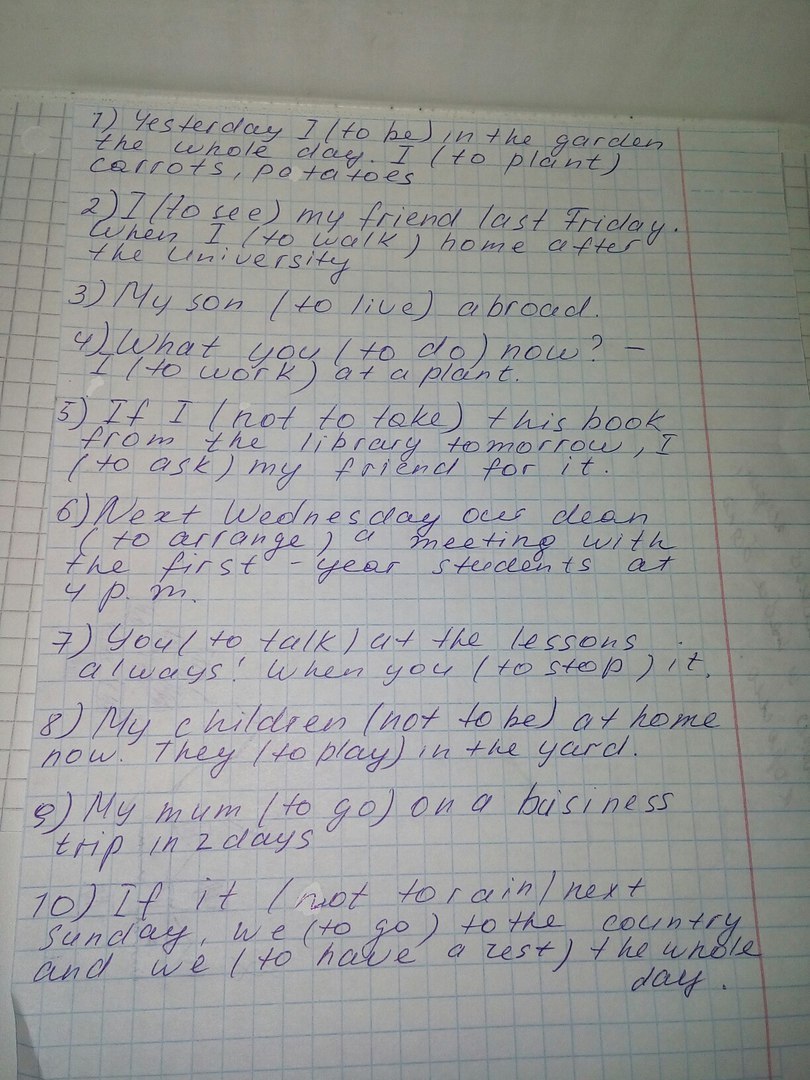 1) Yesterday I (to be) in the garden
the whole day. I (to plant)
carrots, potatoes
2) I (to see) my friend last Friday.
When I (to walk) home after
the university
3) My son (to live) abroad.
4) What you (to do) now? –
I (to work) at a plant.
5) If I (not to take) this book
from the library tomorrow, I
(to ask) my friend for it.
6) Next Wednesday our dean
(to arrange) a meeting with
the first - year students at
4 p. m.
7) You (to talk) at the lessons
always! When you (to stop) it.
8) My children (not to be) at home
now. They (to play) in the yard.
9) My mum (to go) on a business
trip in 2 days
10) If it (not to rain) next
Sunday, we (to go) to the country
and we (to have a rest) the whole
day.